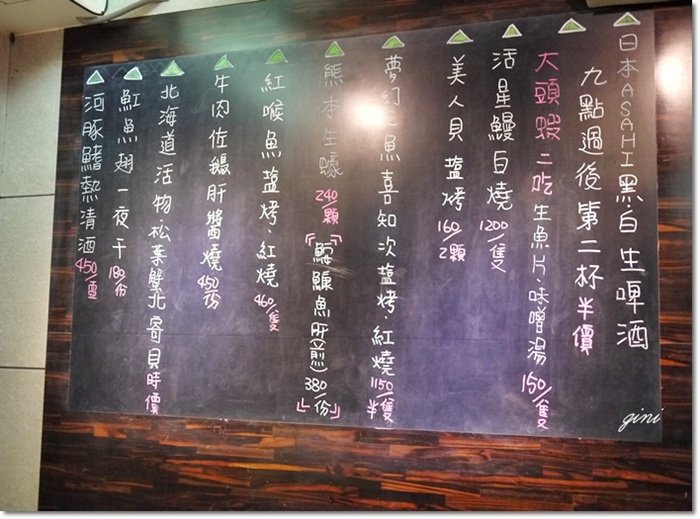 日本ASAHI黑白生啤酒
九點過後第二杯半價
大頭蝦二吃生魚片、味噌湯150/隻
活星鰻白燒1200/隻
美人貝鹽烤160/2顆
夢幻之魚喜知次鹽烤、紅燒1150/半隻
熊本生蠔240/顆
『鮟鱇魚肝煎380/份』
紅喉魚鹽烤、紅燒460/隻
牛肉佐鵝肝醬燒450/份
北海道活物、松葉蟹北寄貝時價
魟魚翅一夜干180/份
河豚鰭熱清酒450/壺
gini